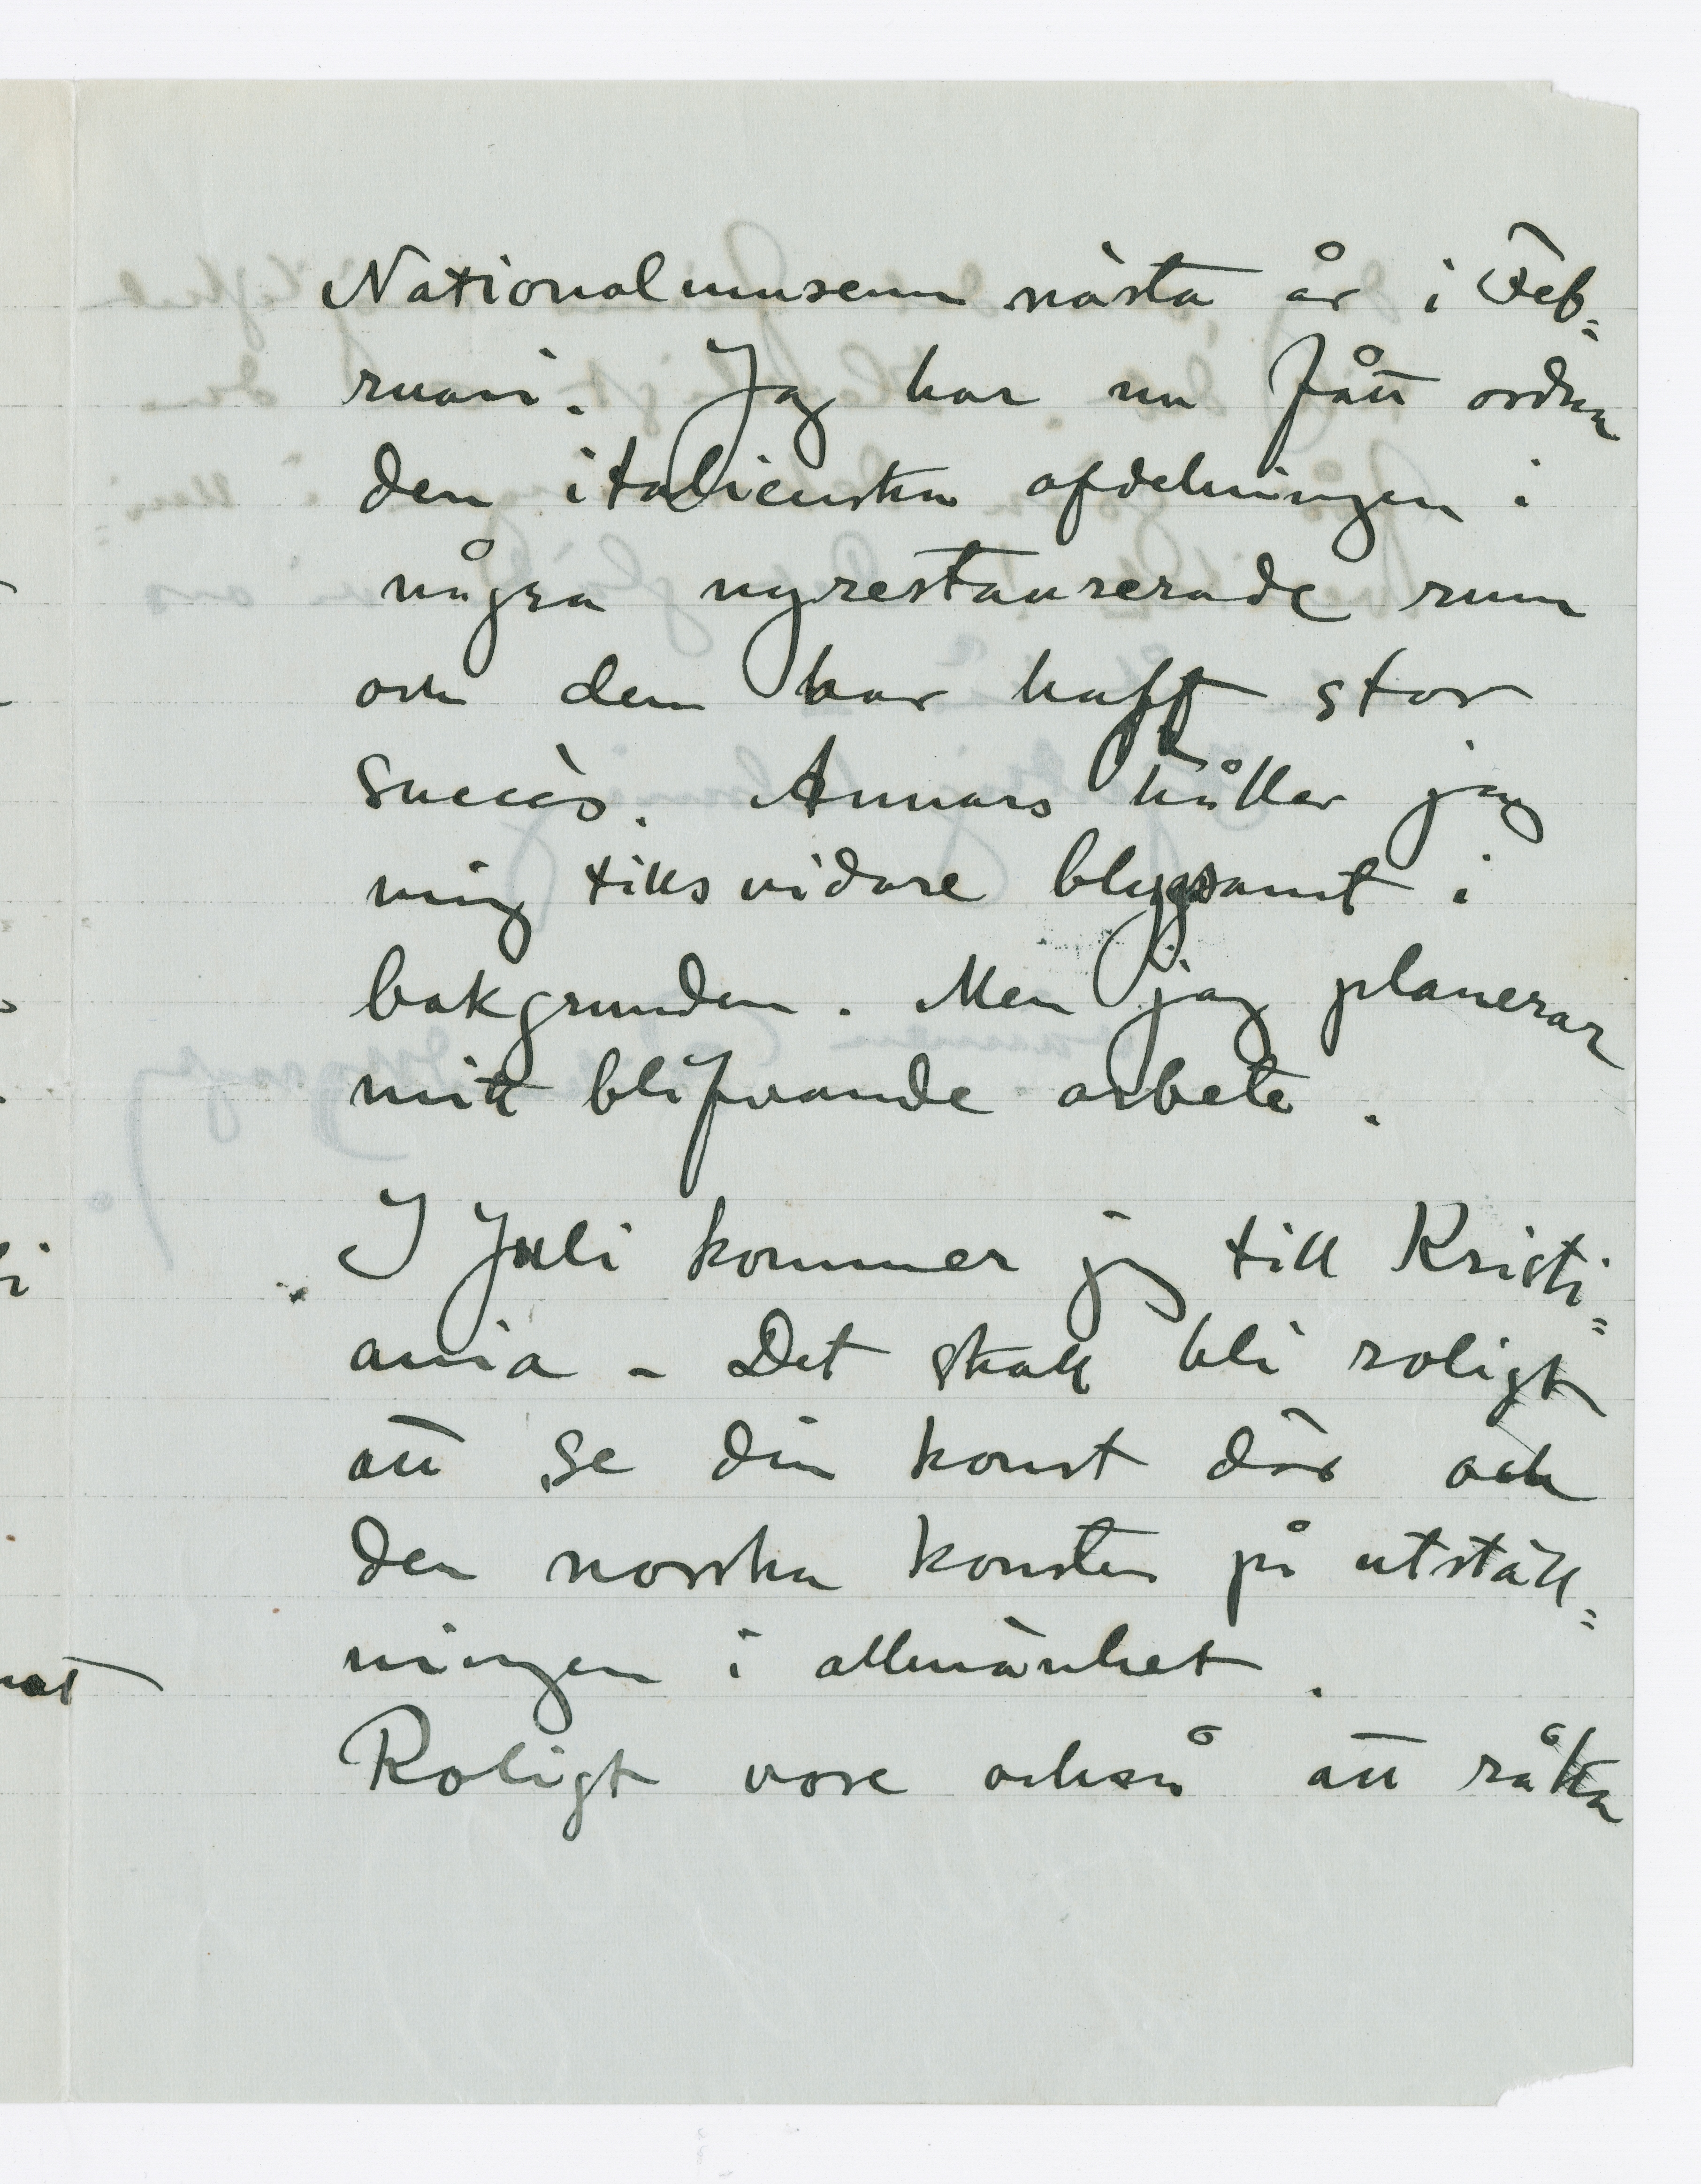 Nationalmuseum nästa år i Feb=
ruari. Jag har nu fått ordna
den italienska afdelningen i
några nyrestaurerade rum
och den har haft stor
succès. Annars håller jag
mig tills vidare blygsamt i
bakgrunden. Men jag planerar
mitt blifvande arbete.
I Juli kommer jag till Kristi=
ania – Det skall bli roligt
att se din konst där och
den norska konsten på utställ=
ningen i allmänhet.
Roligt vore också att råka